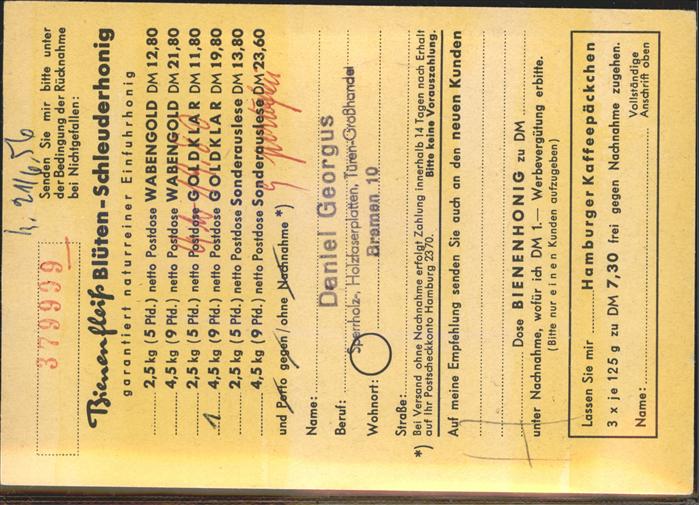 379999
h. 21/6.56
Senden Sie mir bitte unter
der Bedingung der Rücknahme
bei Nichtgefallen:
Bienenfleiß Blüten-Schleuderhonig
garantiert naturreiner Einfuhrhonig
2,5 kg (5 Pfd.) netto Postdose WABENGOLD DM 12,80
4,5 kg (9 Pfd.) netto Postdose WABENGOLD DM 21,80
2,5 kg (5 Pfd.) netto Postdose GOLDKLAR DM 11,80
1 4,5 kg (9 Pfd.) netto Postdose GOLDKLAR DM 19,80
2,5 kg (5 Pfd.) netto Postdose Sonderauslese DM 13,80
4,5 kg (9 Pfd.) netto Postdose Sonderauslese DM 23,60
und Porto gegen/ohne Nachnahme *)
Name:
Daniel Georgus
Beruf:
Sperrholz-, Holzfaserplatten, Türen-Großhandel
Wohnort:
Bremen 10
Straße:
*) Bei Versand ohne Nachnahme erfolgt Zahlung innerhalb 14 Tagen nach Erhalt
auf Ihr Postscheckkonto Hamburg 2370. Bitte keine Vorauszahlung.
Auf meine Empfehlung senden Sie auch an den neuen Kunden
Dose BIENENHONIG zu DM
unter Nachnahme, wofür ich DM 1.— Werbevergütung erbitte.
(Bitte nur einen Kunden aufzugeben)
Lassen Sie mir Hamburger Kaffeepäckchen
3 x je 125 g zu DM 7,30 frei gegen Nachnahme zugehen.
Name:
Vollständige
Anschrift oben